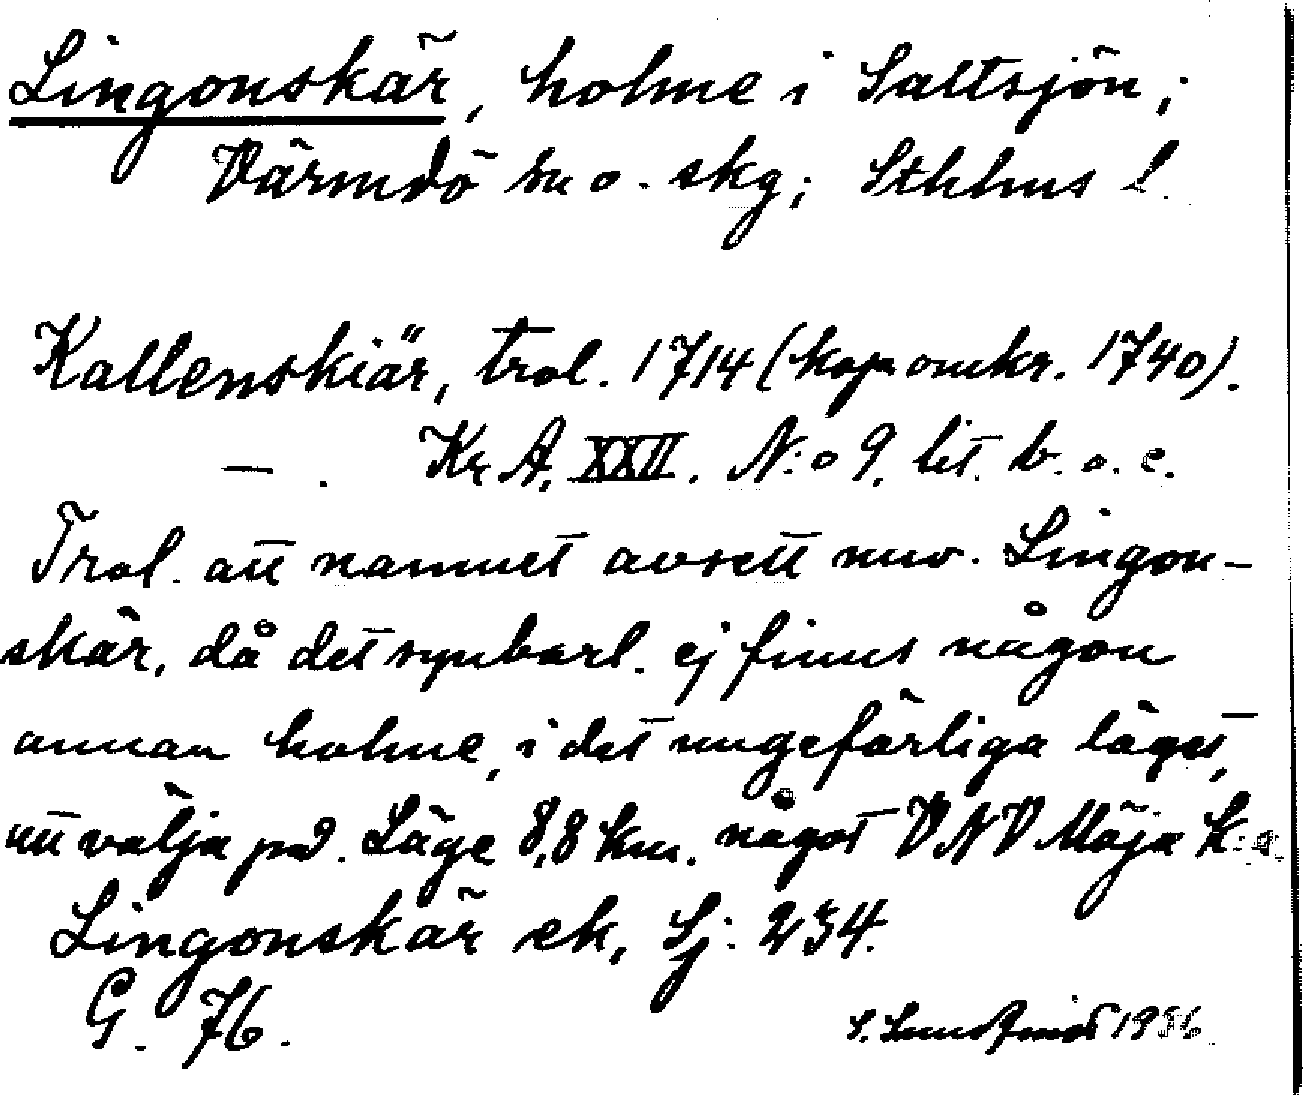 Lingonskär, holme i Saltsjön;
Värmdö sn o. skg; Sthlms l.
Kallenskiär, trol. 1714 (kopa omkr. 1740).
— . Kr A. XXII. N:o 9. lit. b. o. c.
Trol. att namnet avsett nuv. Lingon-
skär, då det synbarl. ej finns någon
annan holme, i det ungefärliga läget,
att välja på. Läge 8,8 km. något VNV Möja k:a
Lingonskär ek, Sj: 234.
G. 76. S. 1936